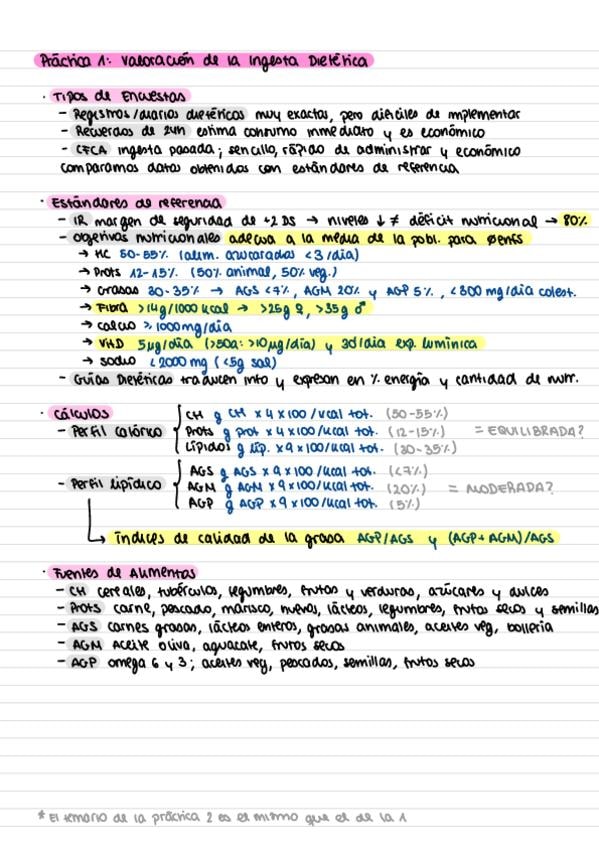 Práctica 1: Valoración de la Ingesta Dietética
· Tipos de Encuestas
- Registros/diarios dietéticos muy exactas, pero difíciles de implementar
- Recuerdos de 24h estima consumo inmediato y es económico
- CFCA ingesta pasada; sencillo, rápido de administrar y económico
comparamos datos obtenidos con estándares de referencia
· Estándares de referencia
- IR margen de seguridad de +2 DS → niveles ↓ ≠ déficit nutricional → 80%
- Objetivos nutricionales adecua a la media de la pobl. para Øenfs
→ HC 50-55% (alim. azucarados <3/día)
→ Prots 12-15% (50% animal, 50% veg.)
→ Grasas 30-35% → AGS <7%, AGM 20% y AGP 5%, <300 mg/día colest.
→ Fibra >14g/1000 kcal → >25g ♀, >35g ♂
→ calcio ≥ 1000mg/día
→ Vit D 5µg/día (>50a: >10µg/día) y 30'/día exp. lumínica
→ sodio <2000 mg (<5g sal)
- Guías Dietéticas traducen into y expresan en % energía y cantidad de nutr.
· Cálculos
- Perfil calórico
CH g CH x 4 x 100 / kcal tot. (50-55%)
Prots g prot x 4 x 100 / kcal tot. (12-15%) = EQUILIBRADA?
Lípidos g líp. x 9 x 100 / kcal tot. (30-35%)
- Perfil lipídico
AGS g AGS x 9 x 100 / kcal tot. (<7%)
AGM g AGM x 9 x 100 / kcal tot. (20%) = MODERADA?
AGP g AGP x 9 x 100 / kcal tot. (5%)
↳ índices de calidad de la grasa AGP/AGS y (AGP+AGM)/AGS
· Fuentes de Alimentos
- CH cereales, tubérculos, legumbres, frutas y verduras, azúcares y dulces
- Prots carne, pescado, marisco, huevos, lácteos, legumbres, frutos secos y semillas
- AGS carnes grasas, lácteos enteros, grasas animales, aceites veg, bollería
- AGM Aceite oliva, aguacate, frutos secos
- AGP omega 6 y 3; aceites veg, pescados, semillas, frutos secos
* El temario de la práctica 2 es el mismo que el de la 1